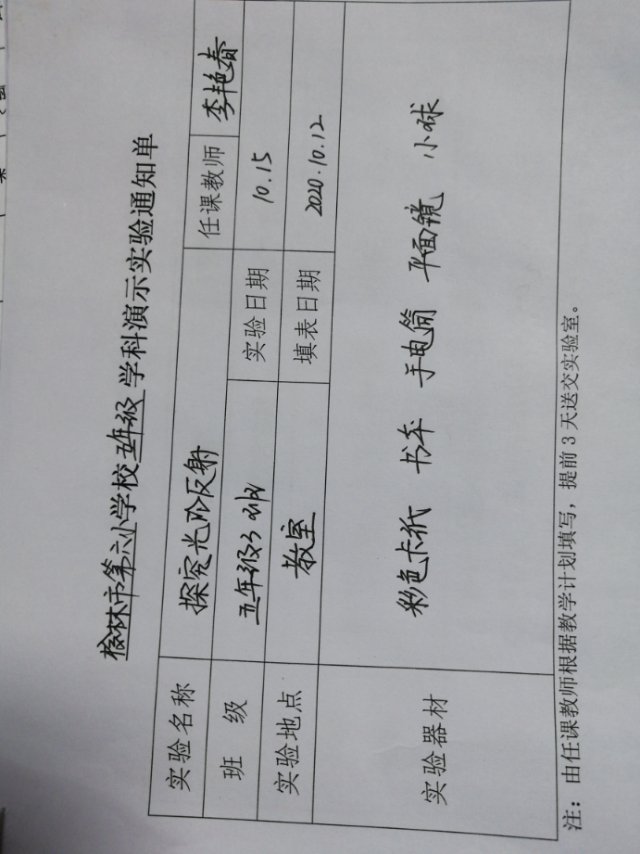 榆林市第六小学校五年级学科演示实验通知单
实验名称 探究光的反射 任课教师 李艳春
班 级 五年级3班 实验日期 10.15
实验地点 教室 填表日期 2020.10.12
实验器材 彩色卡纸 书本 手电筒 平面镜 小球
注：由任课教师根据教学计划填写，提前3天送交实验室。